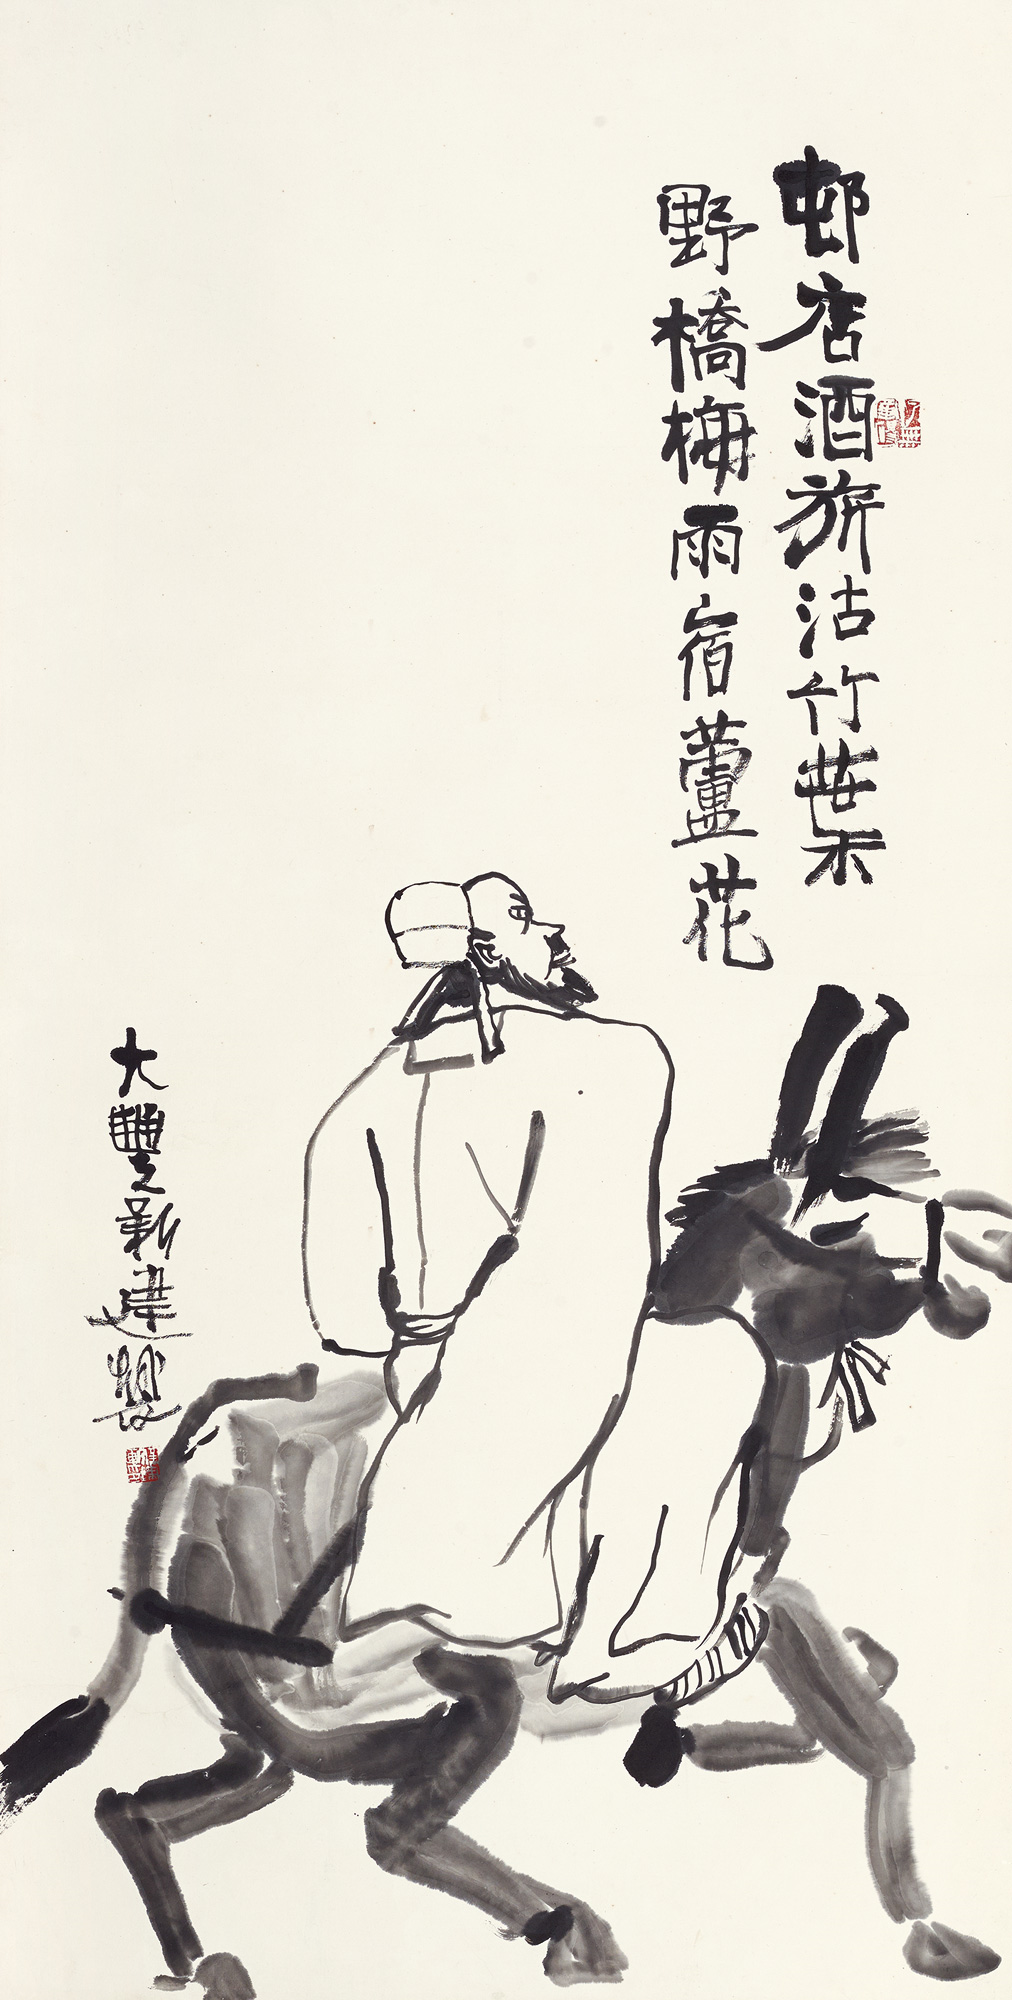 邨店酒旂沽竹葉
野橋梅雨宿蘆花
大豐新建製